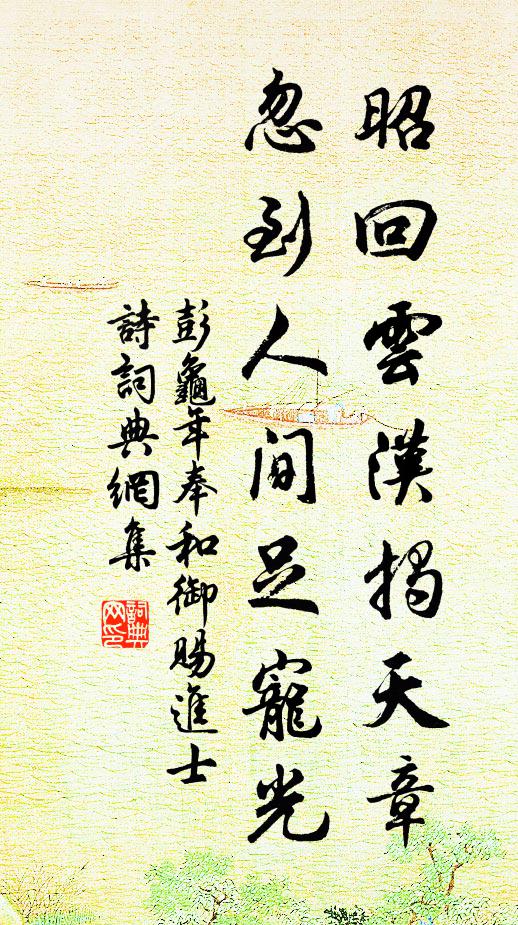 昭回雲漢揭天章
忽到人間足寵光
彭龜年奉和御賜進士
詩詞典網集
詞典网印